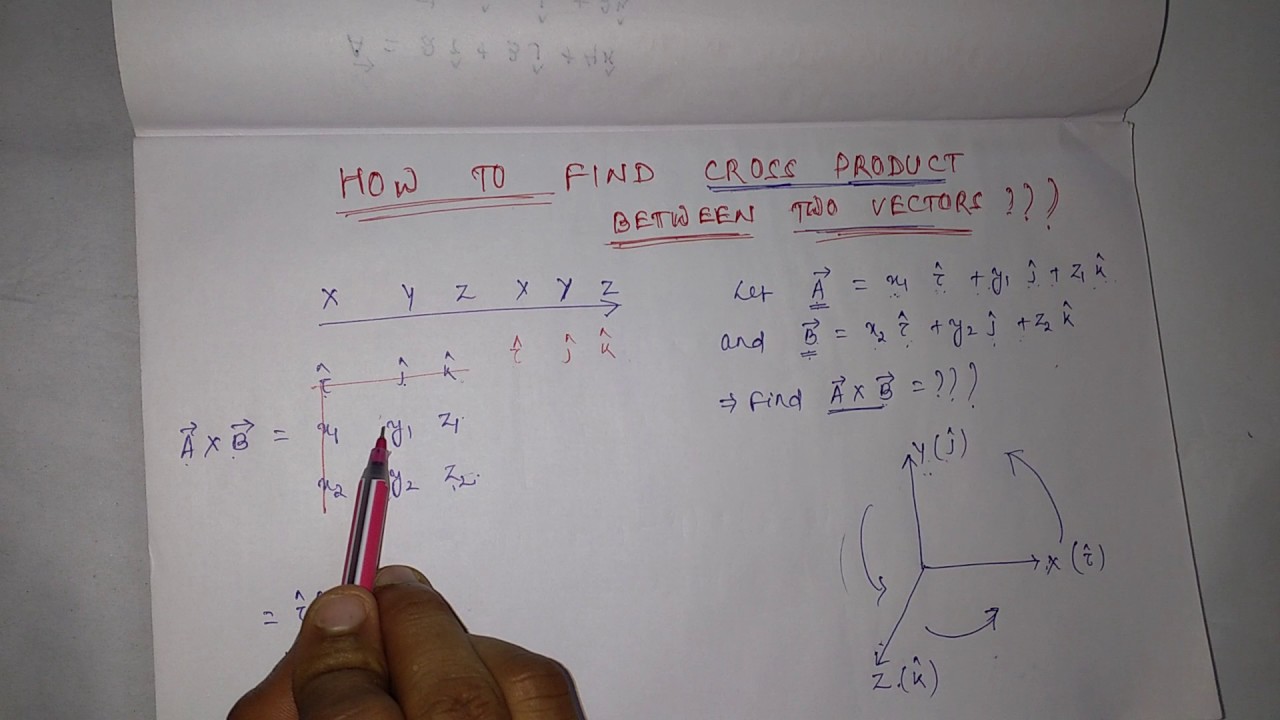 HOW TO FIND CROSS PRODUCT
BETWEEN TWO VECTORS ???
X Y Z X Y Z
î ĵ k̂
î ĵ k̂
A⃗ X B⃗ = x₁ y₁ z₁
x₂ y₂ z₂
= î
Let A⃗ = x₁ î + y₁ ĵ + z₁ k̂
and B⃗ = x₂ î + y₂ ĵ + z₂ k̂
⇒ Find A⃗ X B⃗ = ???
Y (ĵ)
X (î)
Z (k̂)